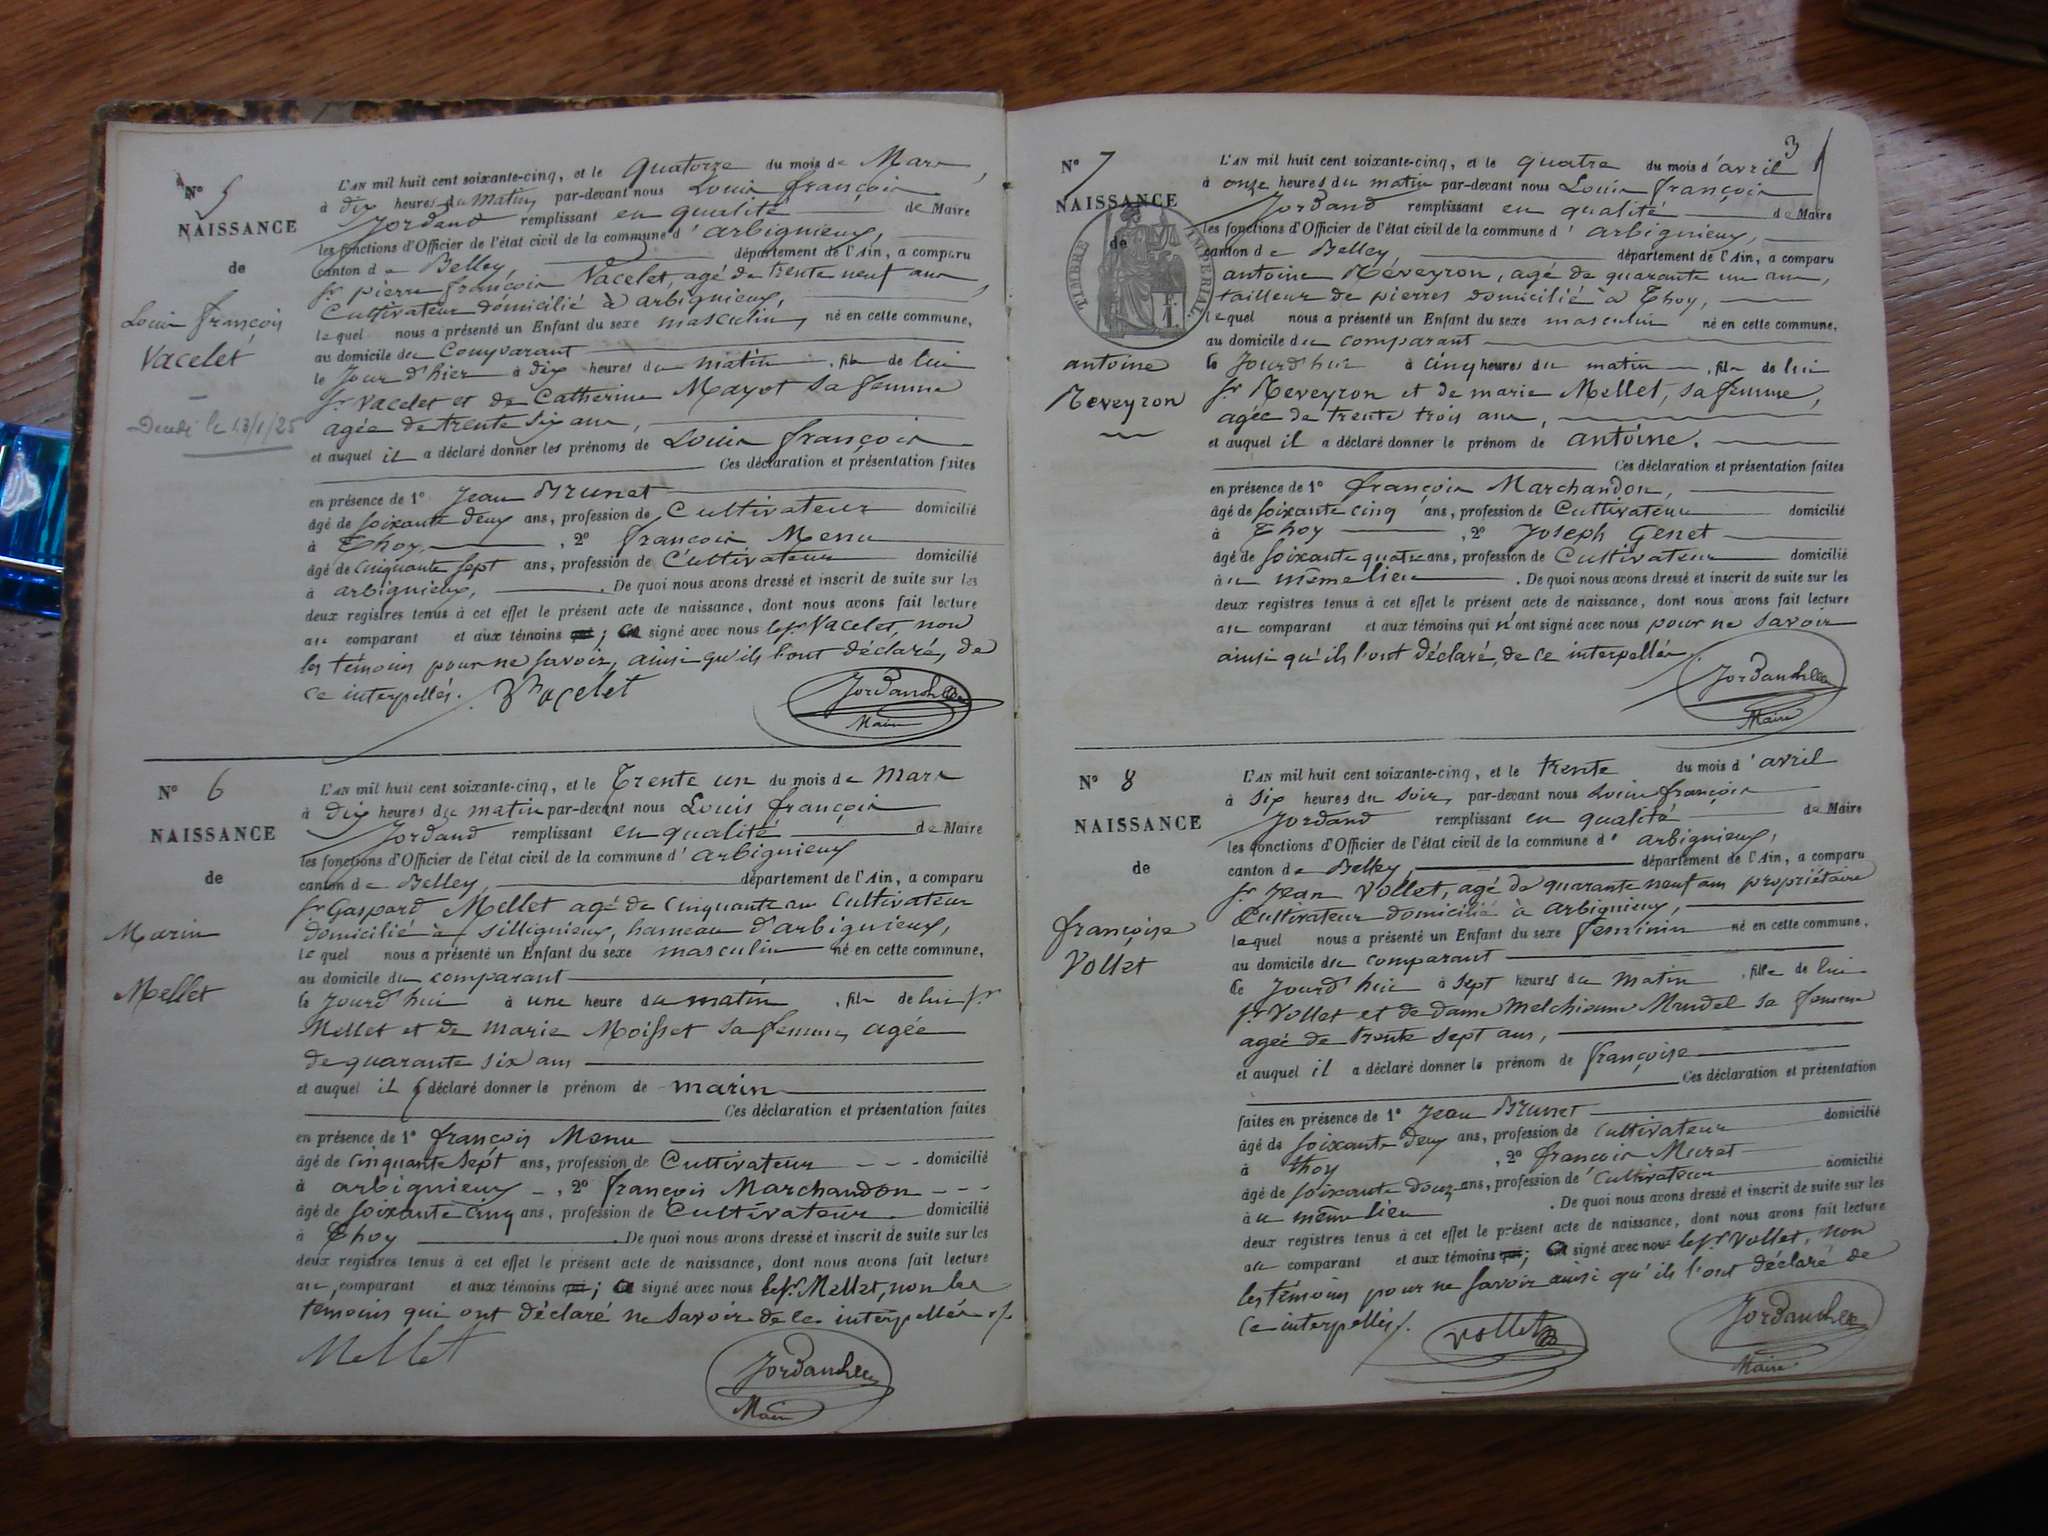 N° 5
NAISSANCE
de
Louis françois
Vacelet
Décédé le 13/1/25
L'AN mil huit cent soixante-cinq, et le quatorze du mois de Mars
à dix heures du matin par-devant nous Louis françois
Jordand remplissant en qualité de Maire
les fonctions d'Officier de l'état civil de la commune d' arbignieux,
canton de Belley département de l'Ain, a comparu
Sr pierre françois Vacelet, agé de trente neuf ans
Cultivateur domicilié à arbignieux,
lequel nous a présenté un Enfant du sexe masculin, né en cette commune,
au domicile du Comparant
le Jour d'hier à dix heures du matin, fils de lui
Sr Vacelet et de Catherine Mayot sa femme
agée de trente six ans,
et auquel il a déclaré donner les prénoms de Louis françois
Ces déclaration et présentation faites
en présence de 1° Jean Brunet
âgé de soixante deux ans, profession de Cultivateur domicilié
à Thoy, 2° françois Menu
âgé de Cinquante sept ans, profession de Cultivateur domicilié
à arbignieux, . De quoi nous avons dressé et inscrit de suite sur les
deux registres tenus à cet effet le présent acte de naissance, dont nous avons fait lecture
au comparant et aux témoins qui; a signé avec nous le Sr Vacelet, non
les témoins pour ne savoir, ainsi qu'ils l'ont déclaré, de
ce interpellés. Vacelet
Maire
N° 6
NAISSANCE
de
Marin
Mellet
L'AN mil huit cent soixante-cinq, et le Trente un du mois de Mars
à dix heures du matin par-devant nous Louis françois
Jordand remplissant en qualité de Maire
les fonctions d'Officier de l'état civil de la commune d' arbignieux
canton de Belley, département de l'Ain, a comparu
Sr Gaspard Mellet agé de Cinquante ans Cultivateur
domicilié à Sillignieux, hameau d'arbignieux,
lequel nous a présenté un Enfant du sexe masculin né en cette commune,
au domicile du comparant
le Jourd'hui à une heure du matin, fils de lui Sr
Mellet et de marie Moisset sa femme, agée
de quarante six ans
et auquel il a déclaré donner le prénom de marin
Ces déclaration et présentation faites
en présence de 1° françois Menu
âgé de Cinquante sept ans, profession de Cultivateur domicilié
à arbignieux, 2° françois Marchandon
âgé de soixante cinq ans, profession de Cultivateur domicilié
à Thoy . De quoi nous avons dressé et inscrit de suite sur les
deux registres tenus à cet effet le présent acte de naissance, dont nous avons fait lecture
au comparant et aux témoins qui; a signé avec nous le Sr Mellet, non les
temoins qui ont déclaré ne savoir de ce interpellés
Mellet
Maire
3
N° 7
NAISSANCE
de
TIMBRE IMPERIAL
antoine
Neveyron
L'AN mil huit cent soixante-cinq, et le quatre du mois d'avril
à onze heures du matin par-devant nous Louis françois
Jordand remplissant en qualité de Maire
les fonctions d'Officier de l'état civil de la commune d' arbignieux,
canton de Belley département de l'Ain, a comparu
antoine Neveyron, agé de quarante un ans,
tailleur de pierres domicilié à Thoy,
lequel nous a présenté un Enfant du sexe masculin né en cette commune,
au domicile du comparant
le Jourd'hui à cinq heures du matin, fils de lui
Sr Neveyron et de marie Mellet, sa femme,
agée de trente trois ans,
et auquel il a déclaré donner le prénom de antoine.
Ces déclaration et présentation faites
en présence de 1° françois Marchandon,
âgé de soixante cinq ans, profession de Cultivateur domicilié
à Thoy, 2° Joseph Genet
âgé de soixante quatre ans, profession de Cultivateur domicilié
au même lieu . De quoi nous avons dressé et inscrit de suite sur les
deux registres tenus à cet effet le présent acte de naissance, dont nous avons fait lecture
au comparant et aux témoins qui n'ont signé avec nous pour ne savoir
ainsi qu'ils l'ont déclaré, de ce interpellés.
Maire
N° 8
NAISSANCE
de
françoise
Vollet
L'AN mil huit cent soixante-cinq, et le trente du mois d'avril
à six heures du soir, par-devant nous Louis françois
Jordand remplissant en qualité de Maire
les fonctions d'Officier de l'état civil de la commune d' arbignieux,
canton de Belley, département de l'Ain, a comparu
Sr Jean Vollet, agé de quarante neuf ans propriétaire
Cultivateur domicilié à arbignieux,
lequel nous a présenté un Enfant du sexe feminin né en cette commune,
au domicile du comparant
le Jourd'hui à sept heures du matin, fille de lui
Sr Vollet et de dame melchionne sa femme
agée de trente sept ans,
et auquel il a déclaré donner le prénom de françoise
Ces déclaration et présentation
faites en présence de 1° Jean Brunet domicilié
âgé de soixante deux ans, profession de cultivateur
à thoy, 2° francois Muret
âgé de soixante douze ans, profession de Cultivateur domicilié
au même lieu . De quoi nous avons dressé et inscrit de suite sur les
deux registres tenus à cet effet le présent acte de naissance, dont nous avons fait lecture
au comparant et aux témoins qui; a signé avec nous le Sr Vollet, non
les témoins pour ne savoir ainsi qu'ils l'ont déclaré de
ce interpellés.
Vollet
Maire